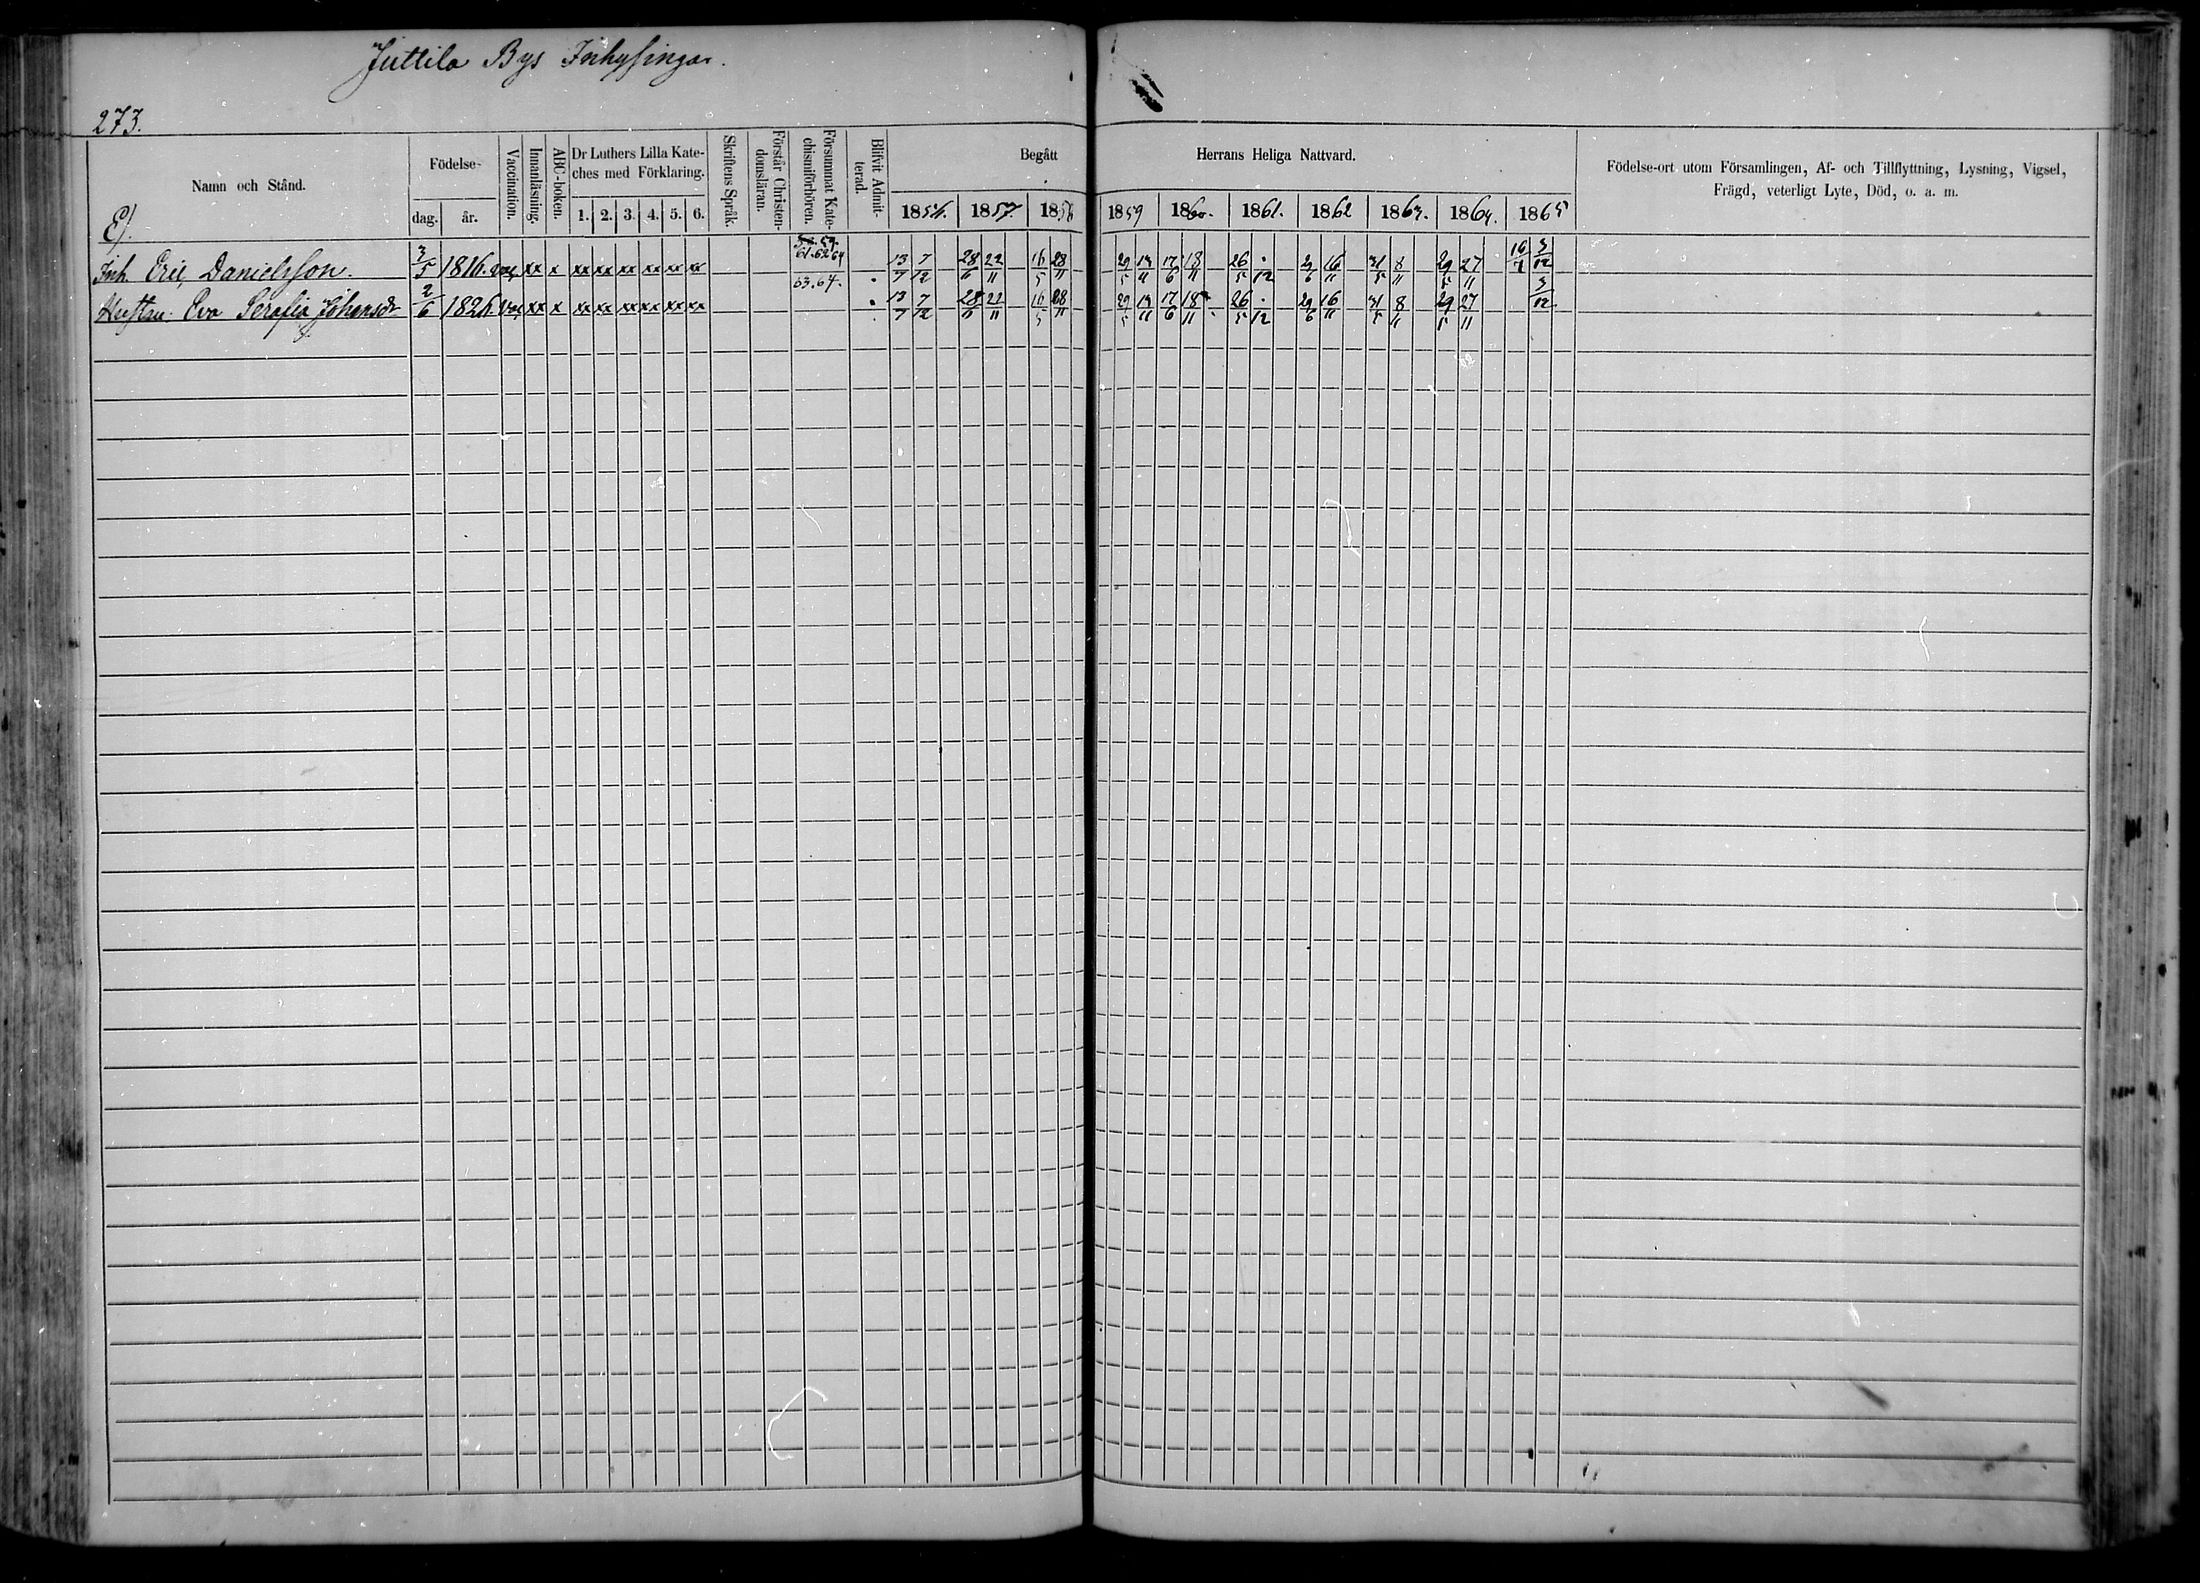 Juttila Bys Inhysingar.
273.
Namn och Stånd.
Födelse-
dag. år.
Vaccination.
Innanläsning.
ABC-boken.
Dr Luthers Lilla Kate-
ches med Förklaring.
1. 2. 3. 4. 5. 6.
Skriftens Språk.
Förstår Christen-
domsläran.
Försummat Kate-
chismiförhören.
Blifvit Admit-
terad.
Begått Herrans Heliga Nattvard.
1856. 1857. 1858 1859 1860. 1861. 1862 1863. 1864. 1865
Födelse-ort utom Församlingen, Af- och Tillflyttning, Lysning, Vigsel,
Frägd, veterligt Lyte, Död, o. a. m.
E).
Inh. Eric, Danielsson. 3/5 1816. vac xx x xx xx xx xx xx xx 59. 61.62 64 13/7 7/12 28/6 22/11 16/5 28/11 29/5 13/11 17/6 18/11 26/5 ./12 29/6 16/11 31/5 8/11 29/5 27/11 16/7 3/12
Hustru Eva Serafia Johansdr 2/6 1826. Vac xx x xx xx xx xx xx xx 63.64. 13/7 7/12 28/6 22/11 16/5 28/11 29/5 13/11 17/6 18/11 26/5 ./12 29/6 16/11 31/5 8/11 29/5 27/11 3/12